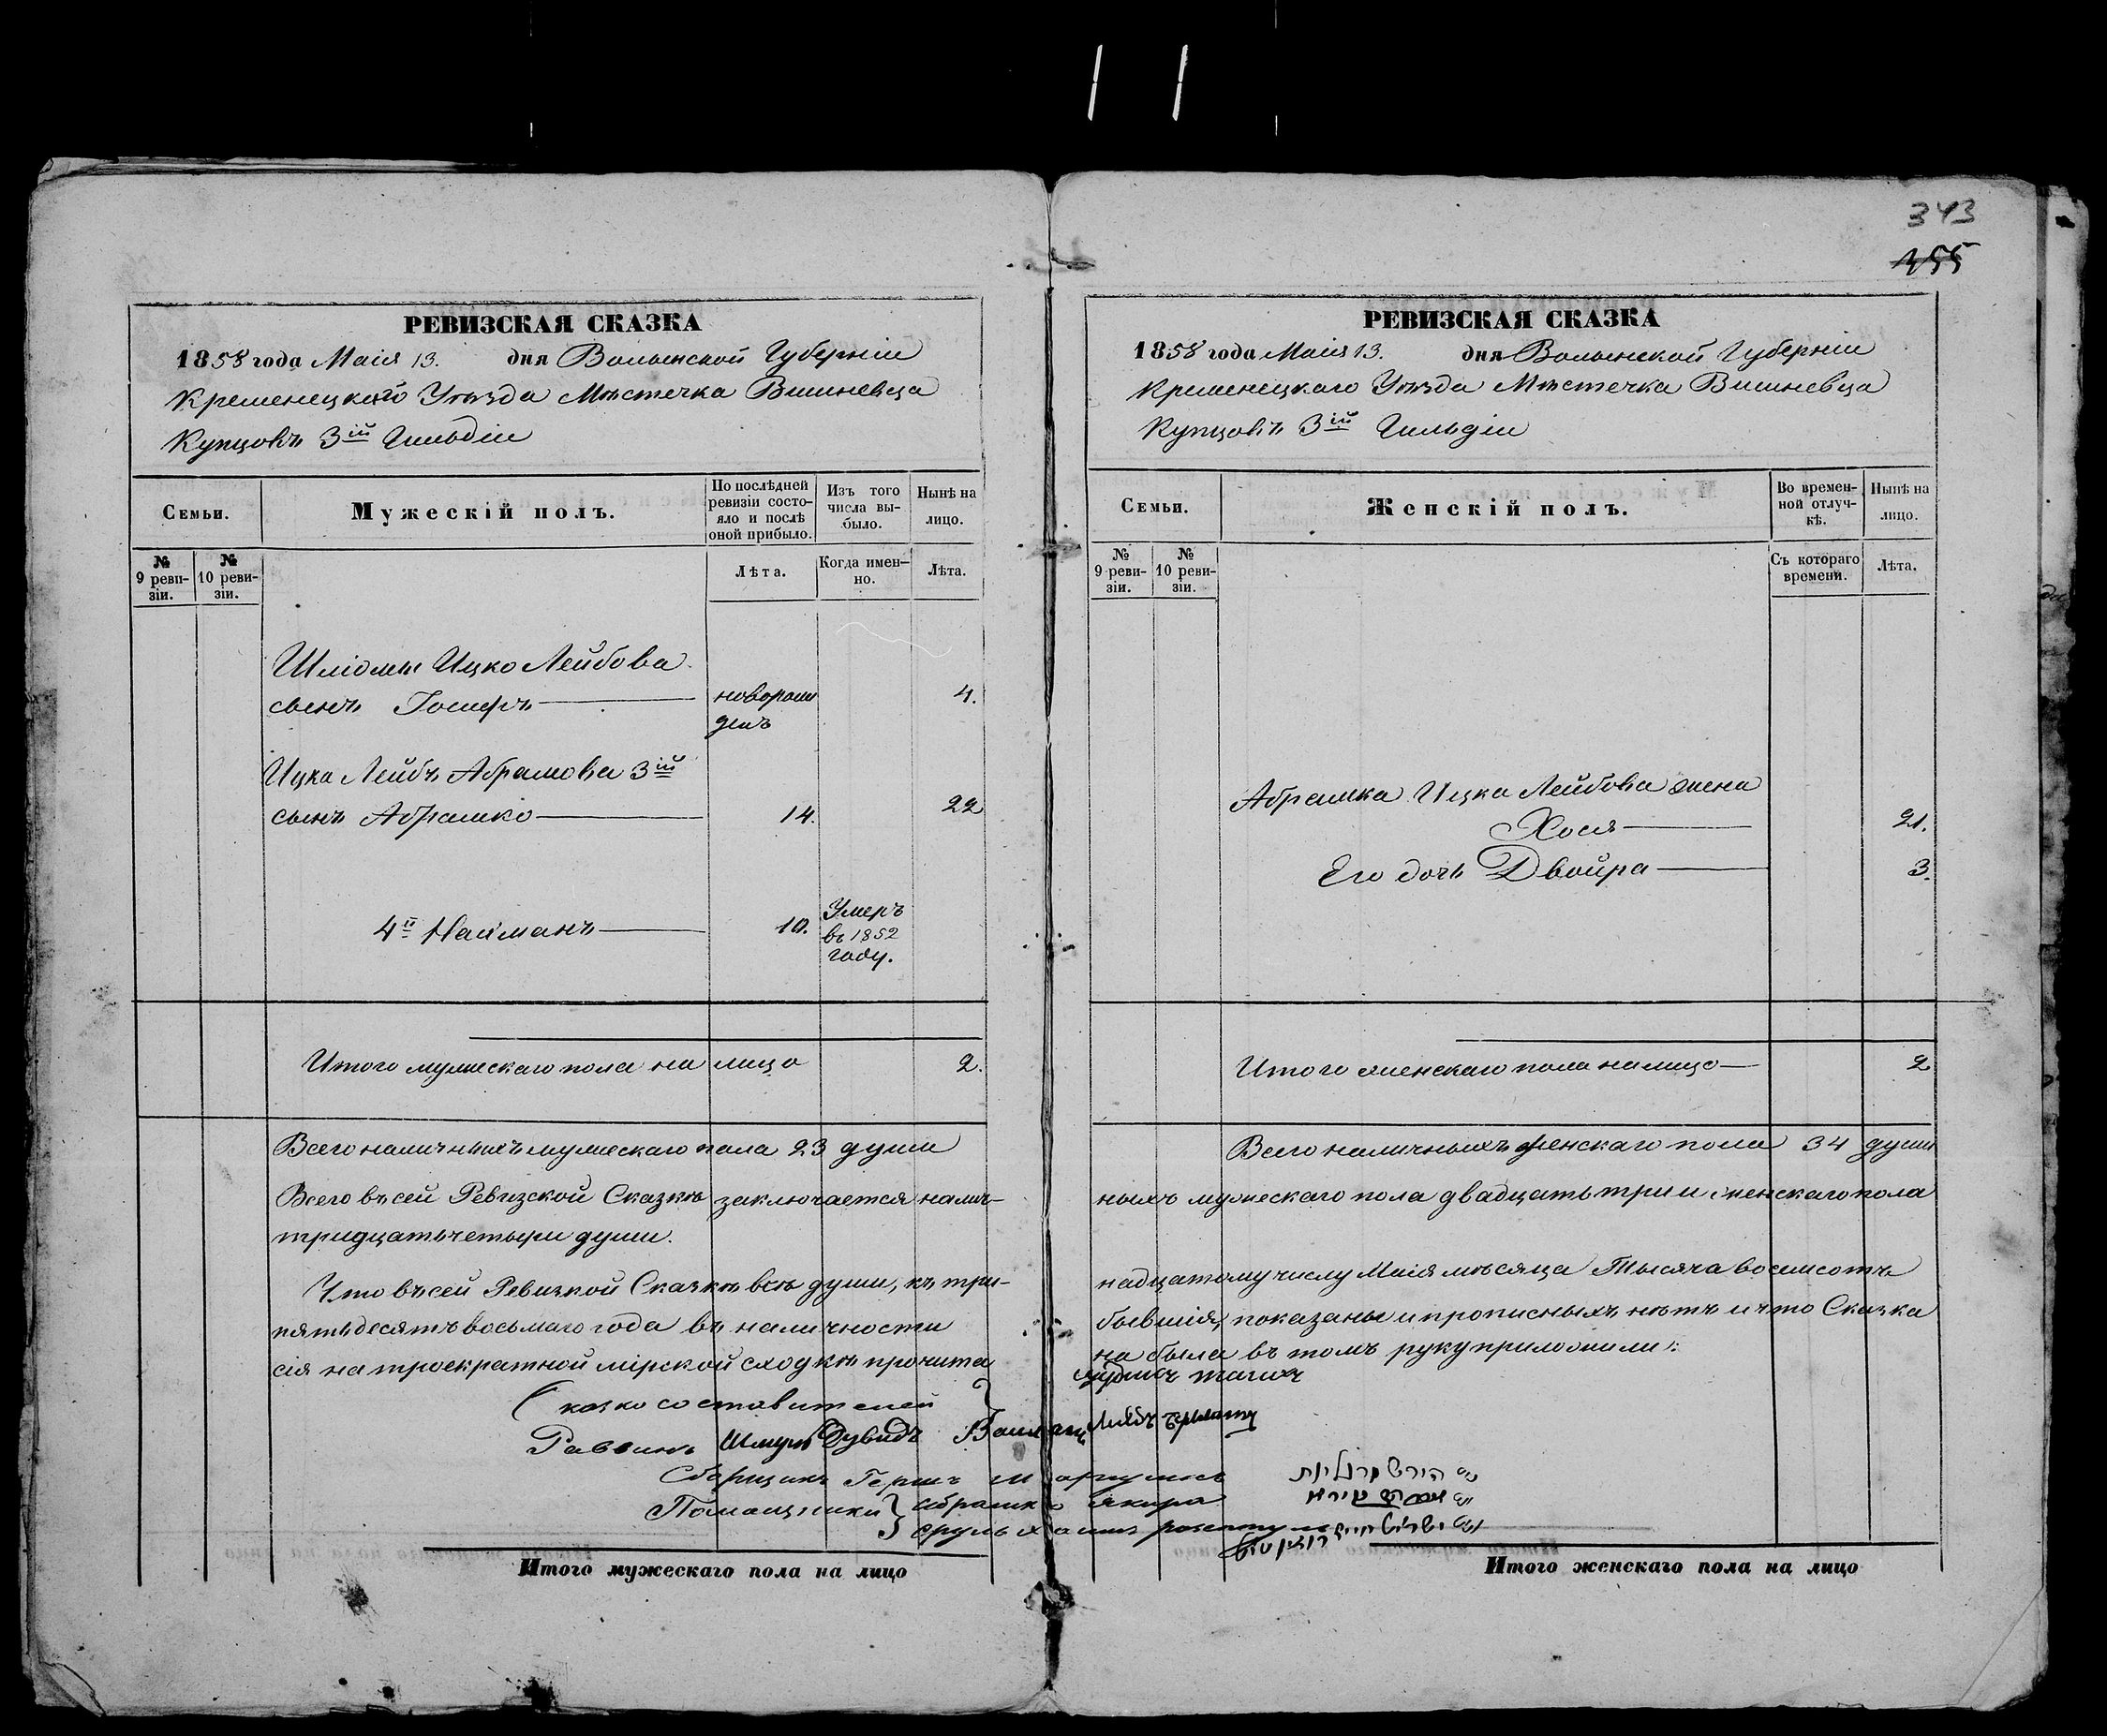 343
155
РЕВИЗСКАЯ СКАЗКА
1858 года Маія 13. дня Волынской Губерніи
Кременецкого Уѣзда Мѣстечка Вишневца
Купцовъ 3ій Гильдіи
Семьи.
Мужескій полъ.
По послѣдней ревизіи состо-
яло и послѣ оной прибыло.
Изъ того числа вы-
было.
Нынѣ на лицо.
№ 9 реви-
зіи.
№ 10 реви-
зіи.
Лѣта.
Когда имен-
но.
Лѣта.
Шліомы Ицко Лейбова
сынъ Іосифъ новорож 4.
денъ
Ицка Лейбъ Абрамова 3ій
сынъ Абрамко 14. 22
4й Найманъ 10. Умеръ
въ 1852
году.
Итого мужескаго пола на лицо 2.
Всего наличныхъ мужескаго пола 23 души
Всего въ сей Ревизской Сказкѣ заключается налич-
тридцать четыри души.
Что въ сей Ревизкой Сказкѣ всѣ души, къ три-
пятьдесятъ восьмаго года въ наличности
сія на троекратной мірской сходкѣ прочита
составителей
Раввинъ Шмуль Дувидъ
Сборщикъ Гершъ Маргулисъ
Помощники Абрамко
Сруль Хаимъ
Итого мужескаго пола на лицо
РЕВИЗСКАЯ СКАЗКА
1858 года Маія 13. дня Волынской Губерніи
Кременецкаго Уѣзда Мѣстечка Вишневца
Купцовъ 3ій Гильдіи
Семьи.
Женскій полъ.
Во времен-
ной отлуч-
кѣ.
Нынѣ на лицо.
№ 9 реви-
зіи.
№ 10 реви-
зіи.
Съ котораго времени.
Лѣта.
Абрамка Ицка Лейбова жена
Хося 21.
Его дочь Двойра 3.
Итого женскаго пола на лицо 2
Всего наличныхъ женскаго пола 34 души
ныхъ мужескаго пола двадцать три и женскаго пола
надцатому числу Маія мѣсяца Тысяча восемсотъ
бывшія, показаны и прописныхъ нѣтъ и что Сказка
на была въ томъ руку приложили:
הירש מרגליות
ישראל חיים
Итого женскаго пола на лицо